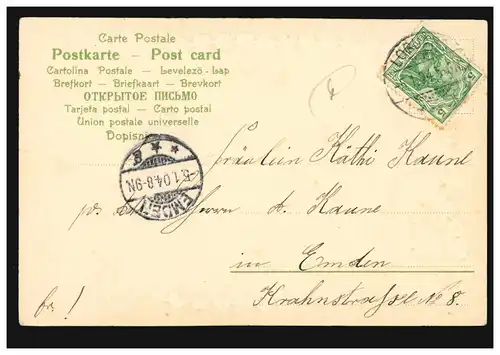 Carte Postale
Postkarte — Post card
Cartolina Postale — Levelező-Lap
Brefkort — Briefkaart — Brevkort
ОТКРЫТОЕ ПИСЬМО
Tarjeta postal — Carto postal
Union postale universelle
Dopisni
EMDEN
5.1.04.8-9N.
* * g
5 5
Fräulein Käthi Kaune
Herrn A. Kaune
in Emden
Krahnstrasse No 8.